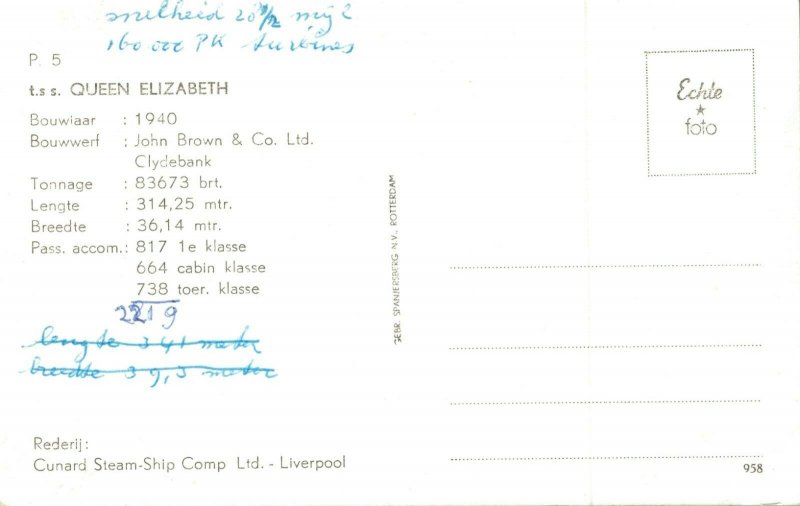 snelheid 28 1/2 mijl
160 000 PK turbines
P. 5
t.s s. QUEEN ELIZABETH
Bouwjaar : 1940
Bouwwerf : John Brown & Co. Ltd.
Clydebank
Tonnage : 83673 brt.
Lengte : 314,25 mtr.
Breedte : 36,14 mtr.
Pass. accom.: 817 1e klasse
664 cabin klasse
738 toer. klasse
2219
lengte 341 meter
breedte 39,5 meter
Rederij:
Cunard Steam-Ship Comp Ltd. - Liverpool
GEBR. SPANJERSBERG N.V., ROTTERDAM
Echte
foto
958